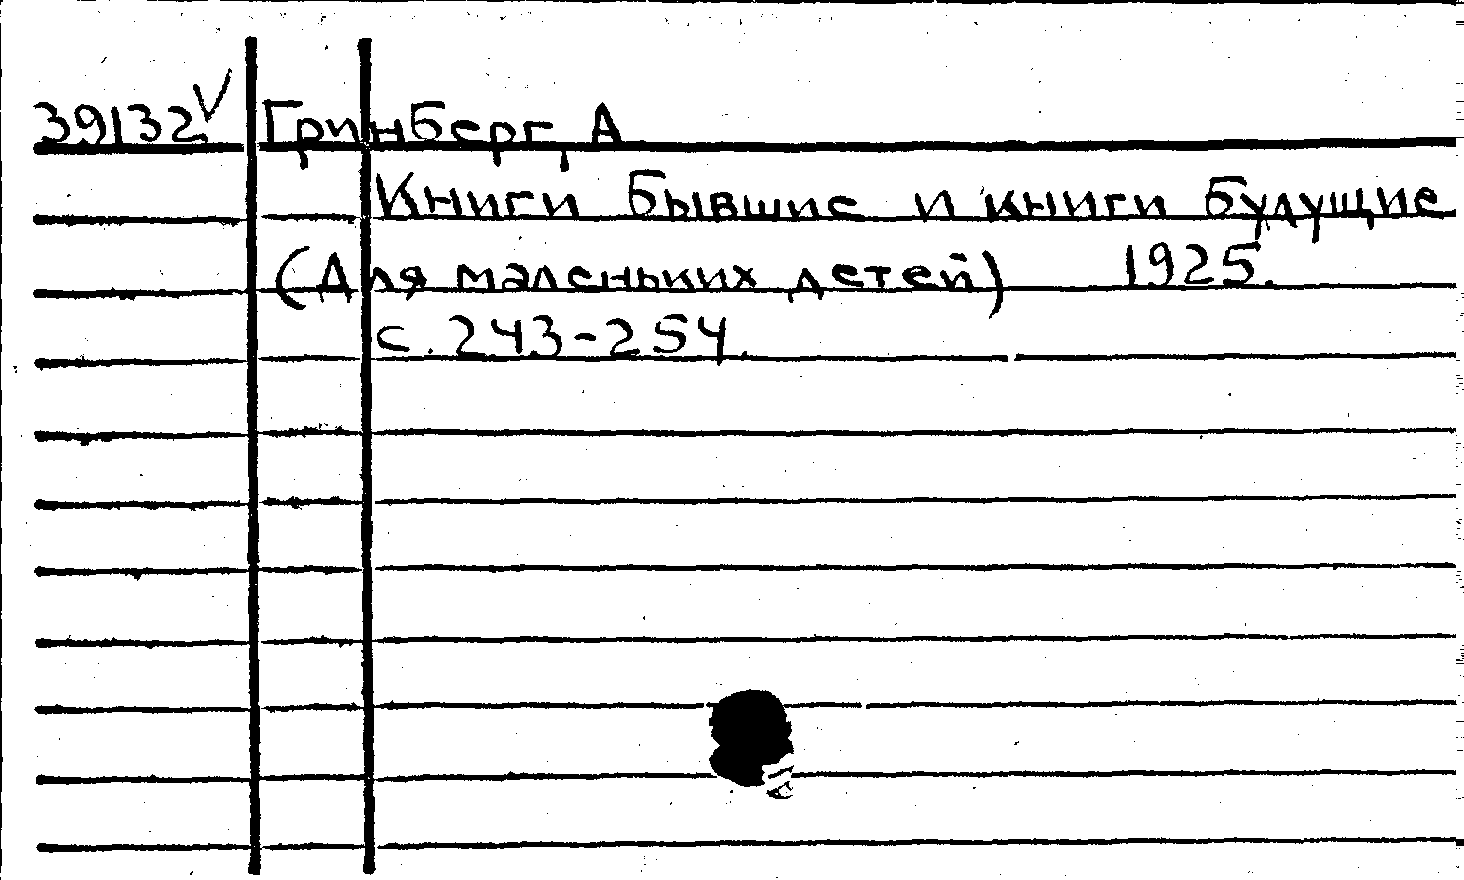 39132 Гринберг, А
Книги бывшие и книги будущие
(Для маленьких детей) 1925.
с. 243-254.